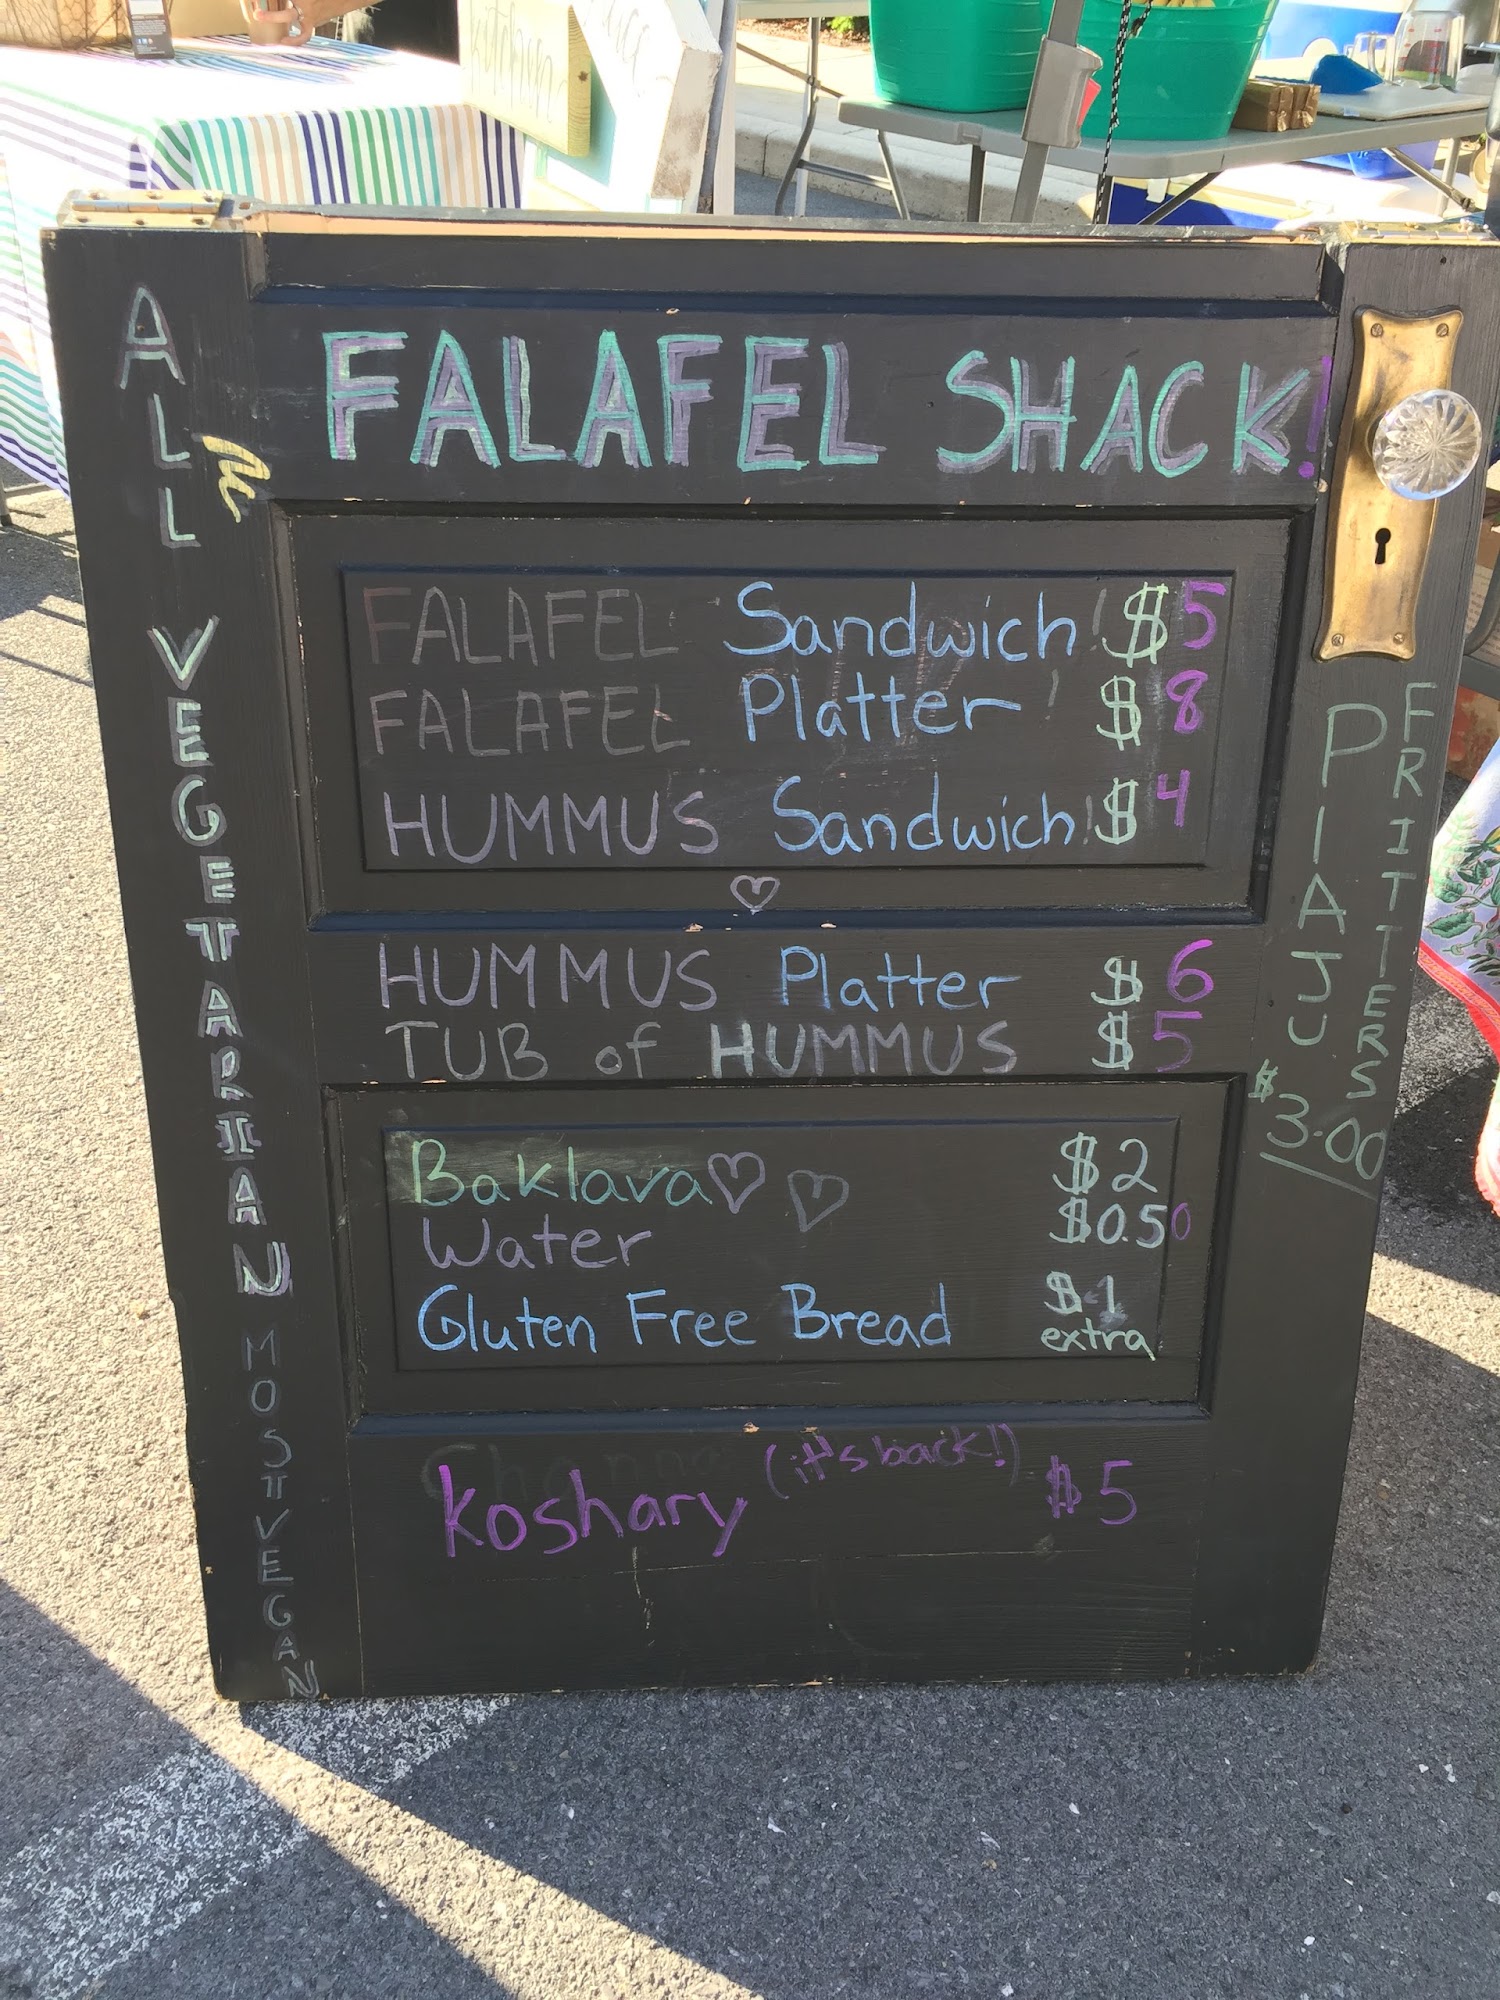 ALL VEGETARIAN MOST VEGAN
FALAFEL SHACK!
FALAFEL Sandwich! $5
FALAFEL Platter! $8
HUMMUS Sandwich! $4
HUMMUS Platter $6
TUB of HUMMUS $5
Baklava $2
Water $0.50
Gluten Free Bread $1
extra
Channa
Koshary (it's back!) $5
PIAJU
FRITTERS
$3.00